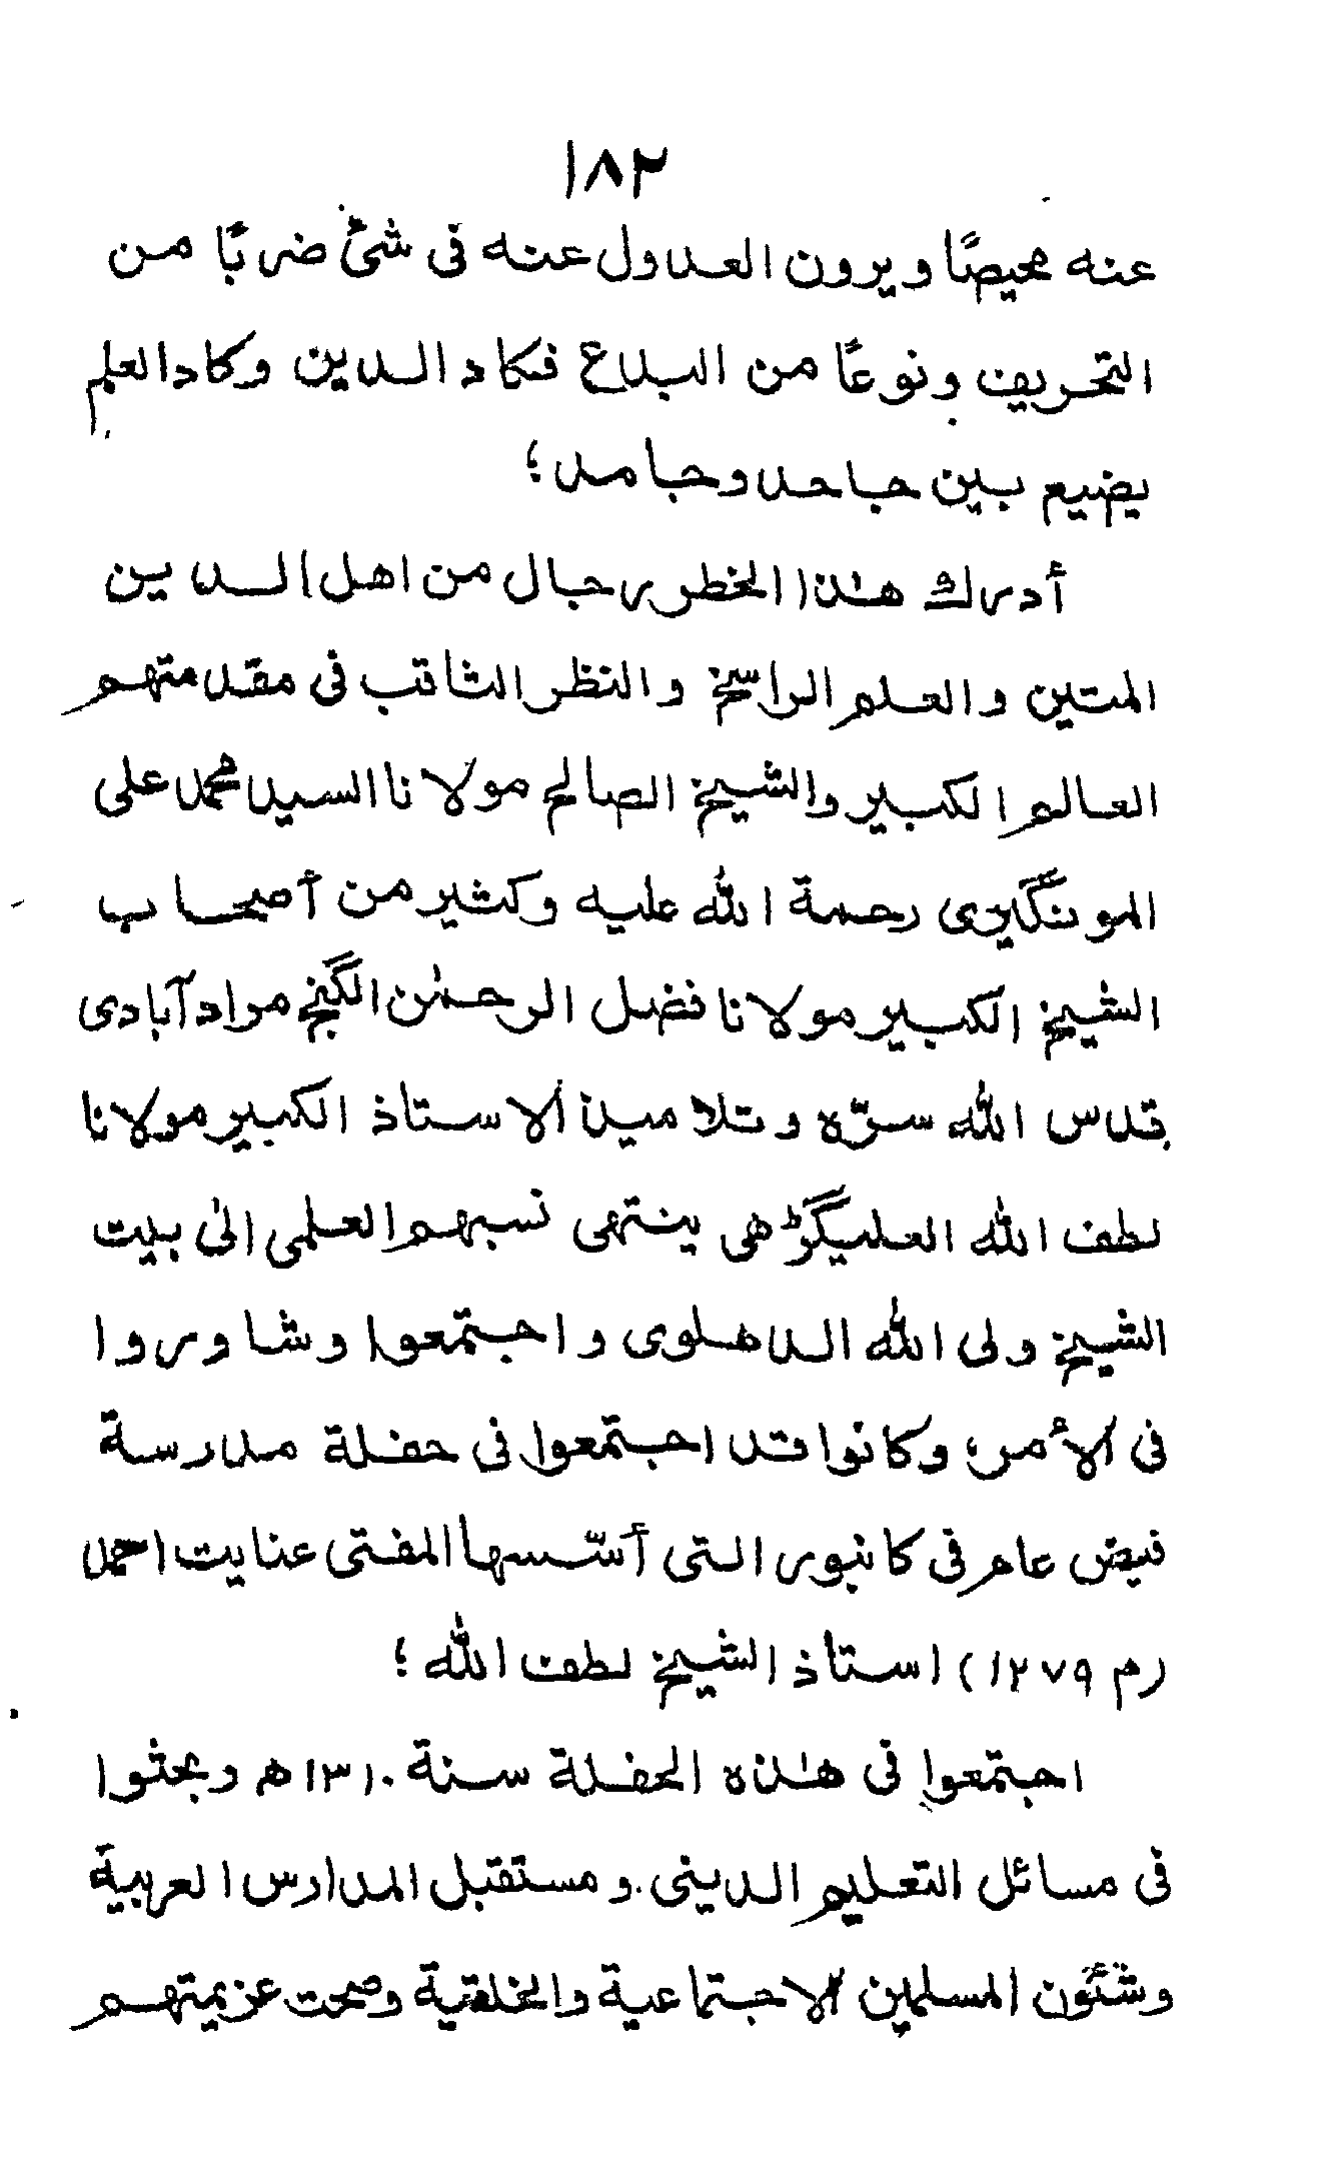 ١٨٢
عنه محيصًا ويرون العدول عنه فى شئ ضربًا من
التحريف ونوعًا من البداع فكاد الدين وكاد العلم
يضيع بين جاحد وجامد؛
أدرك هذا الخطر رجال من اهل الدين
المتين والعلم الراسخ والنظر الثاقب فى مقدمتهم
العالم الكبير والشيخ الصالح مولانا السيد محمد على
المونگيرى رحمة الله عليه وكثير من أصحاب
الشيخ الكبير مولانا فضل الرحمٰن الگنج مراد آبادى
قدس الله سرّه وتلاميذ الاستاذ الكبير مولانا
لطف الله العليگڑهى ينتهى نسبهم العلمى الىٰ بيت
الشيخ ولى الله الدهلوى واجتمعوا وشاوروا
فى الأمر، وكانوا قد اجتمعوا فى حفلة مدرسة
فيض عام فى كانپور التى أسّسها المفتى عنايت احمد
(م ١٢٧٩) استاذ الشيخ لطف الله؛
اجتمعوا فى هٰذه الحفلة سنة ١٣١٠ه وبحثوا
فى مسائل التعليم الدينى ومستقبل المدارس العربية
وشئون المسلمين الاجتماعية والخلقية وصحت عزيمتهم